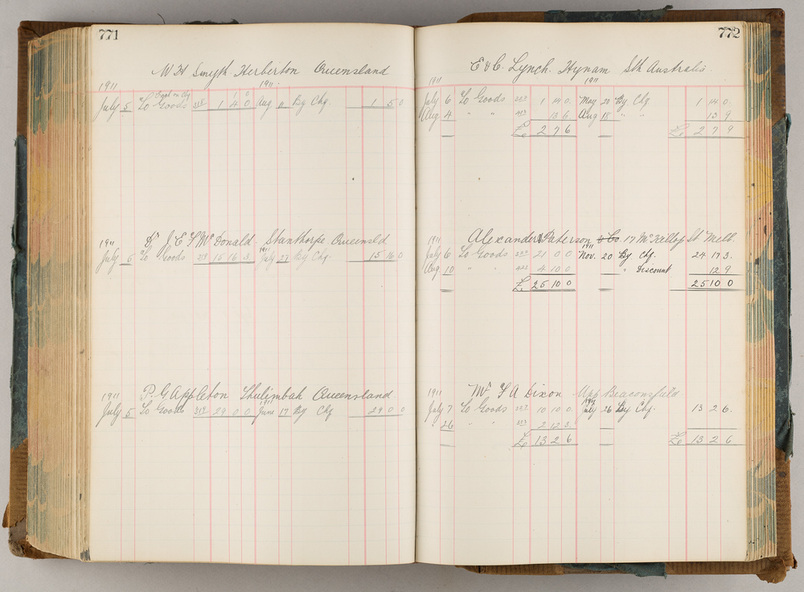 771
W H Smyth Herberton Queensland
1911 1911
July 5 To Goods 1 4 0 Aug 11 By Chq 1 5 0
1911 Dr J. E. F McDonald. Stanthorpe Queensld
1911
July 5 To Goods 15 16 By Chq 15 16 0
1911 P. G Appleton Thulimbah Queensland
July 5 To Goods 312 29 0 0 June 17 By Chq 29 0 0
772
E & C Lynch. Hynam Sth Australia
1911 1911
July 6 To Goods 1 14 0 May 20 By Chq 1 14 0.
Aug 4 " " 13 6 Aug 18 " " 13 9
£ 2 7 6 £ 2 7 9
1911 Alexander Paterson & Co. 17 McKillop St Melb.
1911
July 6 To Goods 21 0 0 Nov. 20 By Chq. 24 17 3.
Aug 10 " " 4 10 0 " Discount 12 9
£ 25 10 0 25 10 0
1911 Mr F A Dixon Upp Beaconsfield
July 7 To Goods 10 10 0 July 26 By Chq. 13 2 6.
26 " " 2 12 6
£ 13 2 6 £ 13 2 6